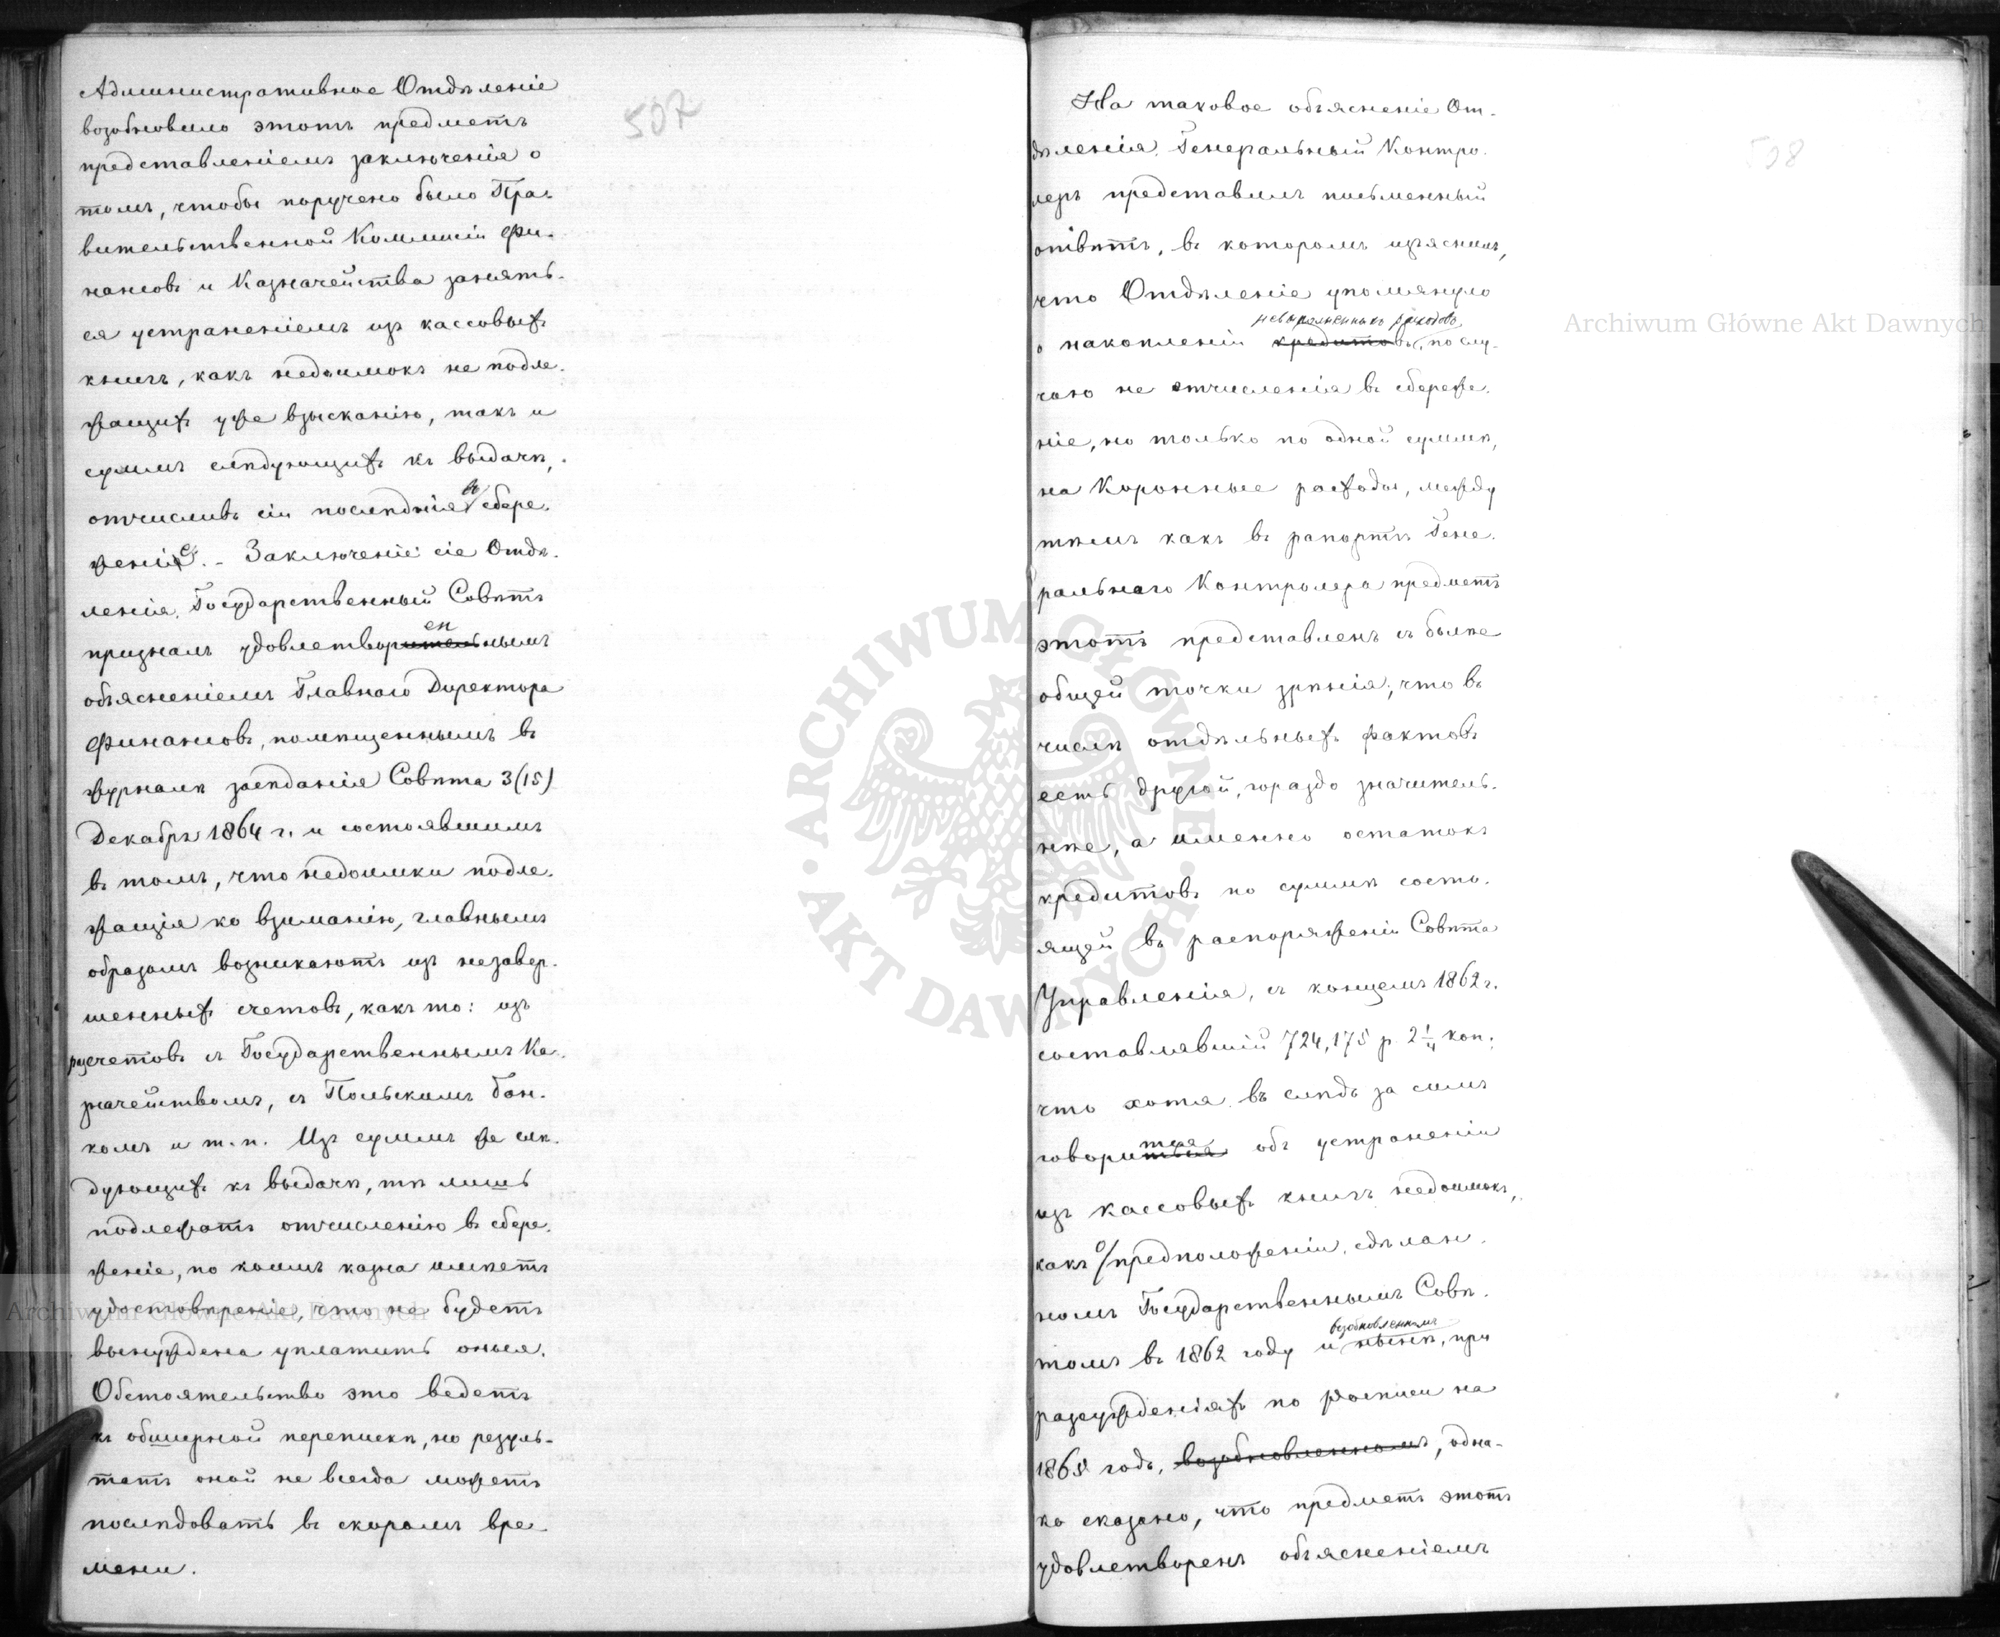 507
Административное Отдѣленіе
возобновило этотъ предметъ
представленіемъ заключенія о
томъ, чтобы поручено было Пра-
вительственной Коммисіи Фи-
нансовъ и Казначейства занять-
ся устраненіемъ изъ кассовыхъ
книгъ, какъ недоимокъ не подле-
жащихъ уже взысканію, такъ и
суммъ слѣдующихъ къ выдачѣ,
отчисливъ сіи послѣднія въ сбере-
женіе. – Заключеніе сіе Отдѣ-
ленія, Государственный Совѣтъ
призналъ удовлетвореннымъ
объясненіемъ Главнаго Директора
Финансовъ, помѣщеннымъ въ
журналѣ засѣданія Совѣта 3 (15)
Декабря 1864 г. и состоявшимъ
въ томъ, что недоимки подле-
жащія ко взиманію, главнымъ
образомъ возникаютъ изъ незавер-
шенныхъ счетовъ, какъ то: изъ
разсчетовъ съ Государственнымъ Ка-
значействомъ, съ Польскимъ Бан-
комъ и т. п. Изъ суммъ же слѣ-
дующихъ къ выдачѣ, тѣ лишь
подлежатъ отчисленію въ сбере-
женіе, по коимъ казна имѣетъ
удостовѣреніе, что не будетъ
вынуждена уплатить оныя.
Обстоятельство это ведетъ
къ обширной перепискѣ, но резуль-
татъ оной не всегда можетъ
послѣдовать въ скоромъ вре-
мени.
508
На таковое объясненіе От-
дѣленія, Генеральный Контро-
леръ представилъ письменный
отвѣтъ, въ которомъ изъяснилъ,
что Отдѣленіе упомянуло
невыполненныхъ расходовъ
о накопленіи кредитовъ, по слу-
чаю не отчисленія въ сбереже-
ніе, но только по одной суммѣ,
на Коронные расходы, между
тѣмъ какъ въ рапортѣ Гене-
ральнаго Контролера предметъ
этотъ представленъ съ болѣе
общей точки зрѣнія; что въ
числѣ отдѣльныхъ фактовъ
есть другой, гораздо значитель-
нѣе, а именно остатокъ
кредитовъ по суммѣ состо-
ящей въ распоряженіи Совѣта
Управленія, съ концемъ 1862 г.
составлявшій 724,175 р. 2 1/4 коп.;
что хотя въ слѣдъ за симъ
говорится объ устраненіи
изъ кассовыхъ книгъ недоимокъ,
какъ о предположеніи, сдѣлан-
номъ Государственнымъ Совѣ-
томъ въ 1862 году и возобновленномъ, при
разсужденіяхъ по росписи на
1865 годъ, возобновленномъ, одна-
ко сказано, что предметъ этотъ
удовлетворенъ объясненіемъ
Archiwum Główne Akt Dawnych
Archiwum Główne Akt Dawnych
ARCHIWUM GŁÓWNE · AKT DAWNYCH ·